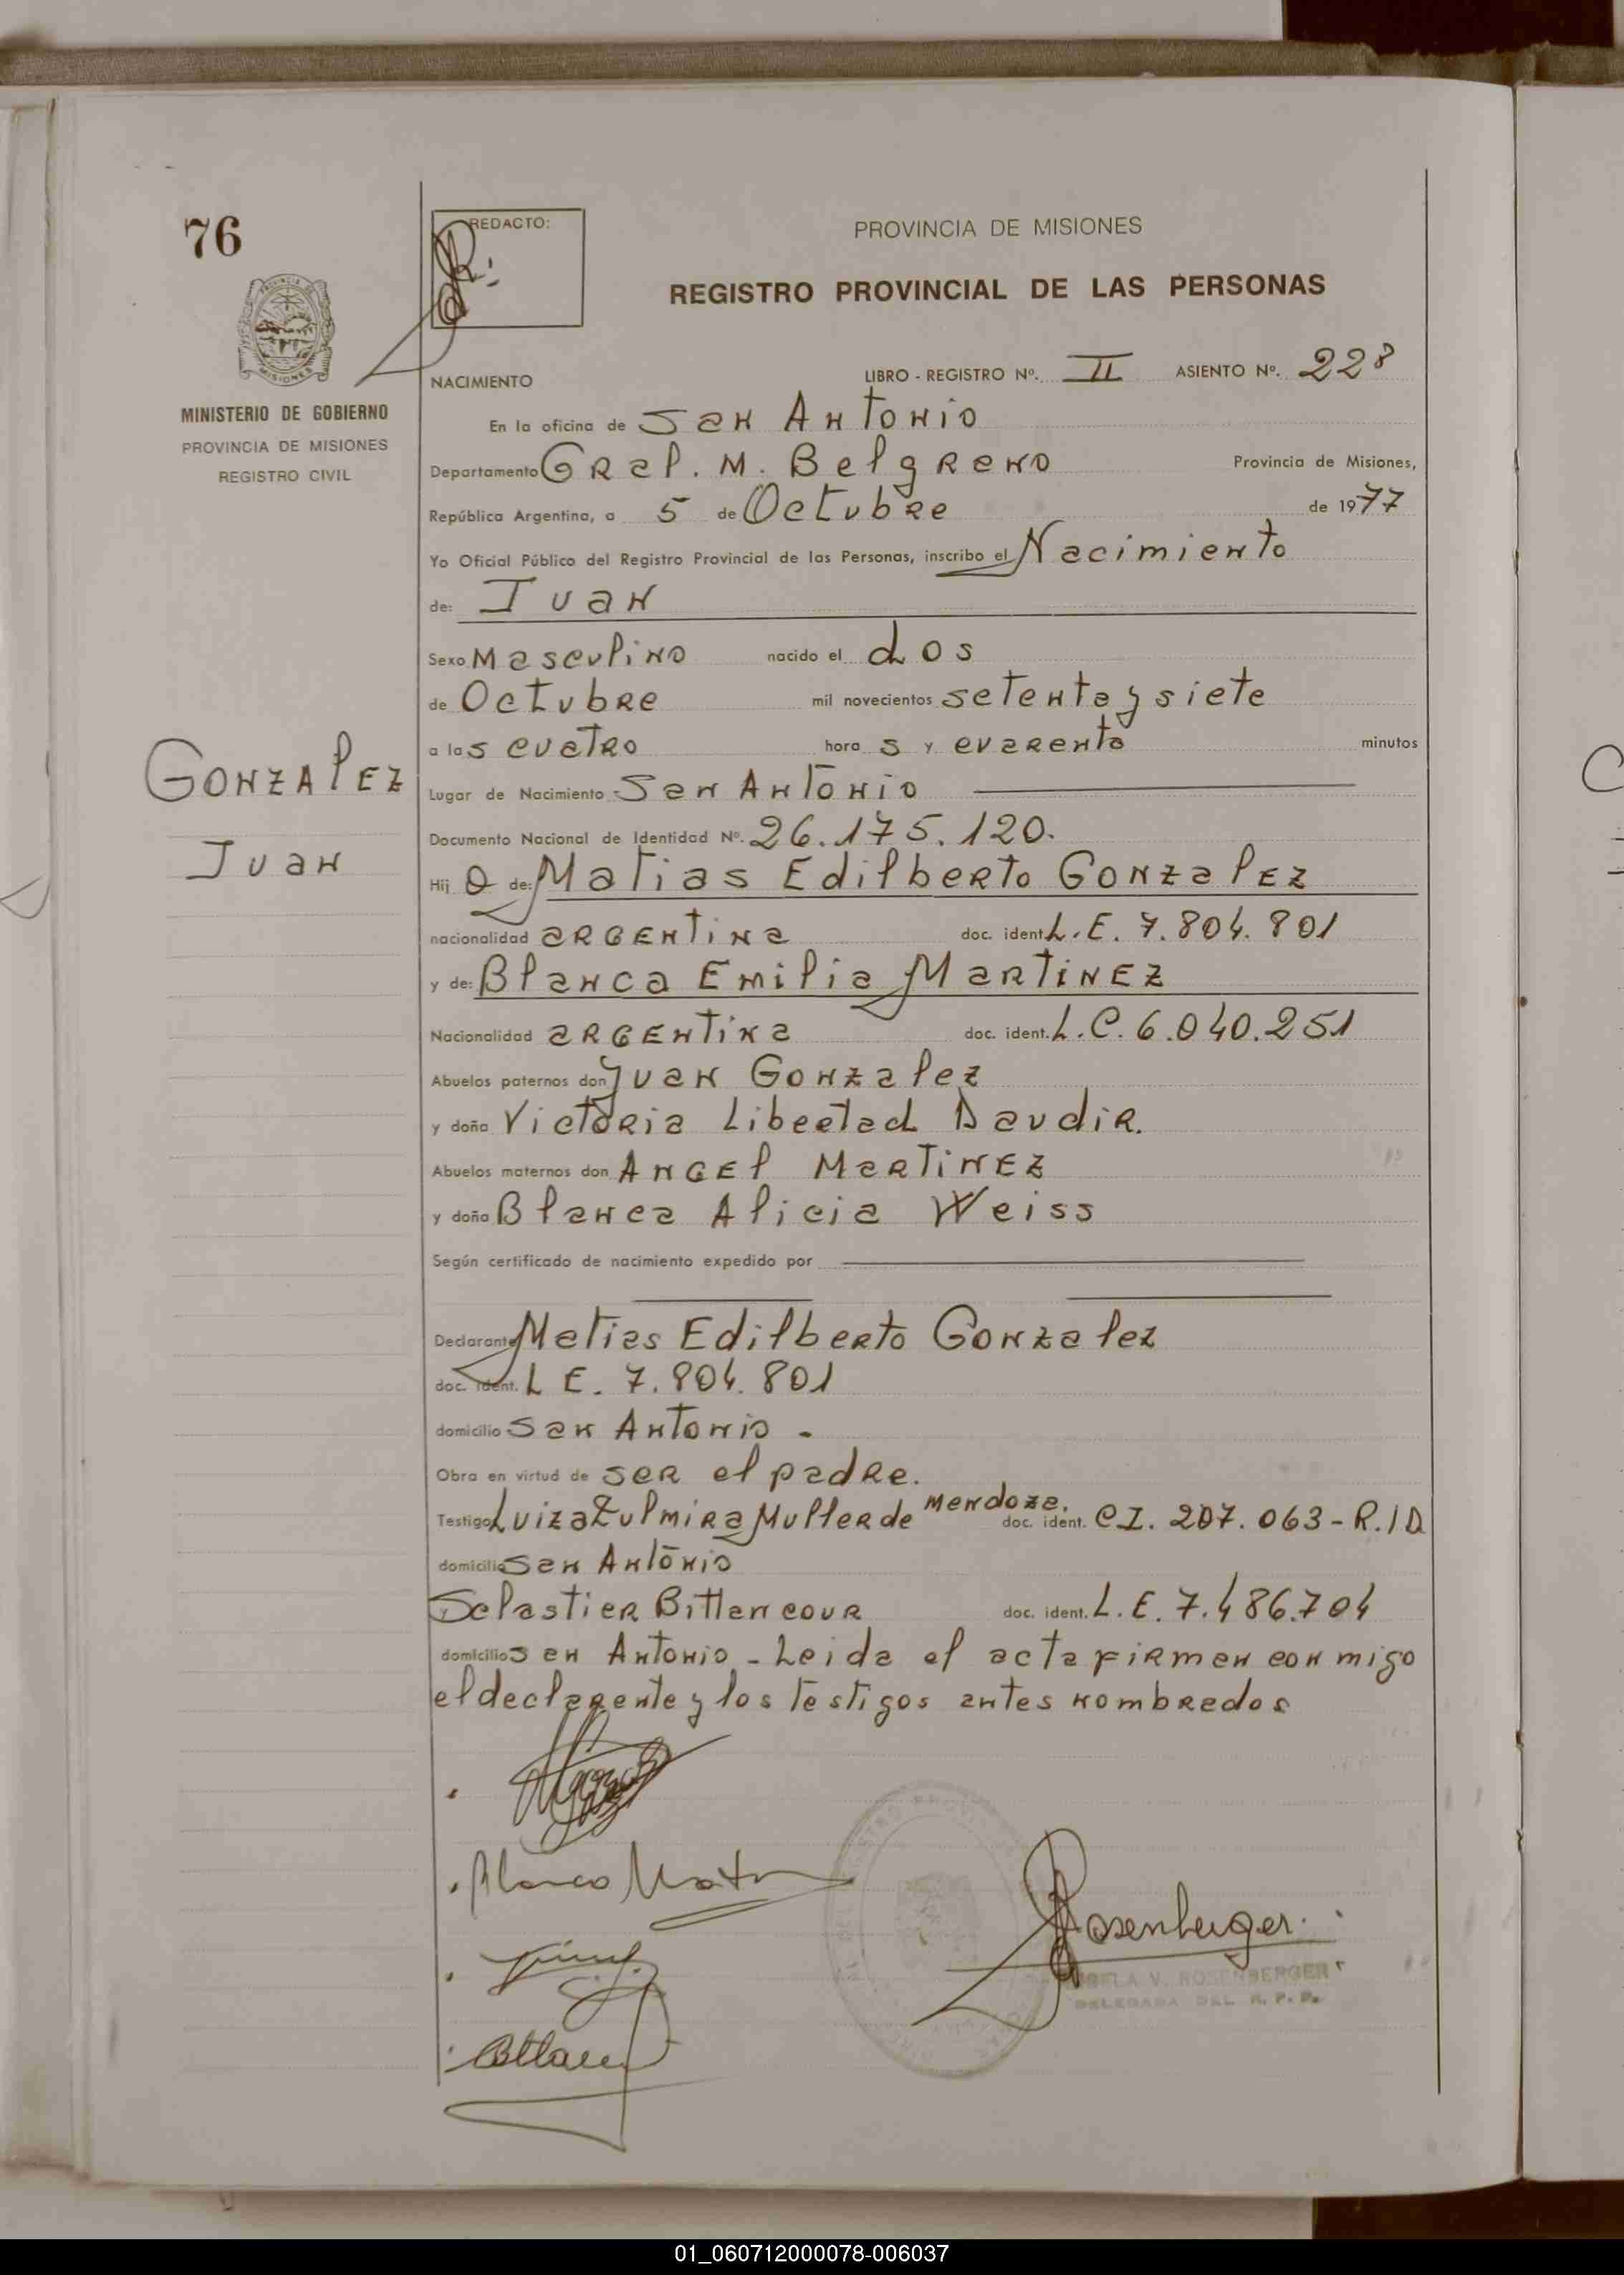 76
REDACTO:
PROVINCIA DE MISIONES
REGISTRO PROVINCIAL DE LAS PERSONAS
MINISTERIO DE GOBIERNO
PROVINCIA DE MISIONES
REGISTRO CIVIL
NACIMIENTO
LIBRO - REGISTRO Nº. II ASIENTO Nº. 228
En la oficina de San Antonio
Departamento Gral. M. Belgrano Provincia de Misiones,
República Argentina, a 5 de Octubre de 1977
Yo Oficial Público del Registro Provincial de las Personas, inscribo el Nacimiento
de: Juan
Sexo Masculino nacido el dos
de Octubre mil novecientos setenta y siete
a las cuatro horas y cuarenta minutos
GONZALEZ
Juan
Lugar de Nacimiento San Antonio
Documento Nacional de Identidad Nº. 26.175.120.
Hijo de: Matias Edilberto Gonzalez
nacionalidad argentina doc. ident. L.E. 7.804.801
y de: Blanca Emilia Martinez
Nacionalidad argentina doc. ident. L.C. 6.040.251
Abuelos paternos don Juan Gonzalez
y doña Victoria Libertad Daudir.
Abuelos maternos don Angel Martinez
y doña Blanca Alicia Weiss
Según certificado de nacimiento expedido por
Declarante Matias Edilberto Gonzalez
doc. ident. L E. 7.804.801
domicilio San Antonio -
Obra en virtud de ser el padre.
Testigo Luiza Zulmira Muller de Mendoza. doc. ident. C.I. 207.063-R.I.D
domicilio San Antonio
Selastier Bittencour doc. ident. L.E. 7.486.704
domicilio San Antonio - Leida el acta firman conmigo
el declarante y los testigos antes nombrados
Blanca
Rosenberger.
V. ROSENBERGER
DELEGADA DEL R. P. P.
01_060712000078-006037